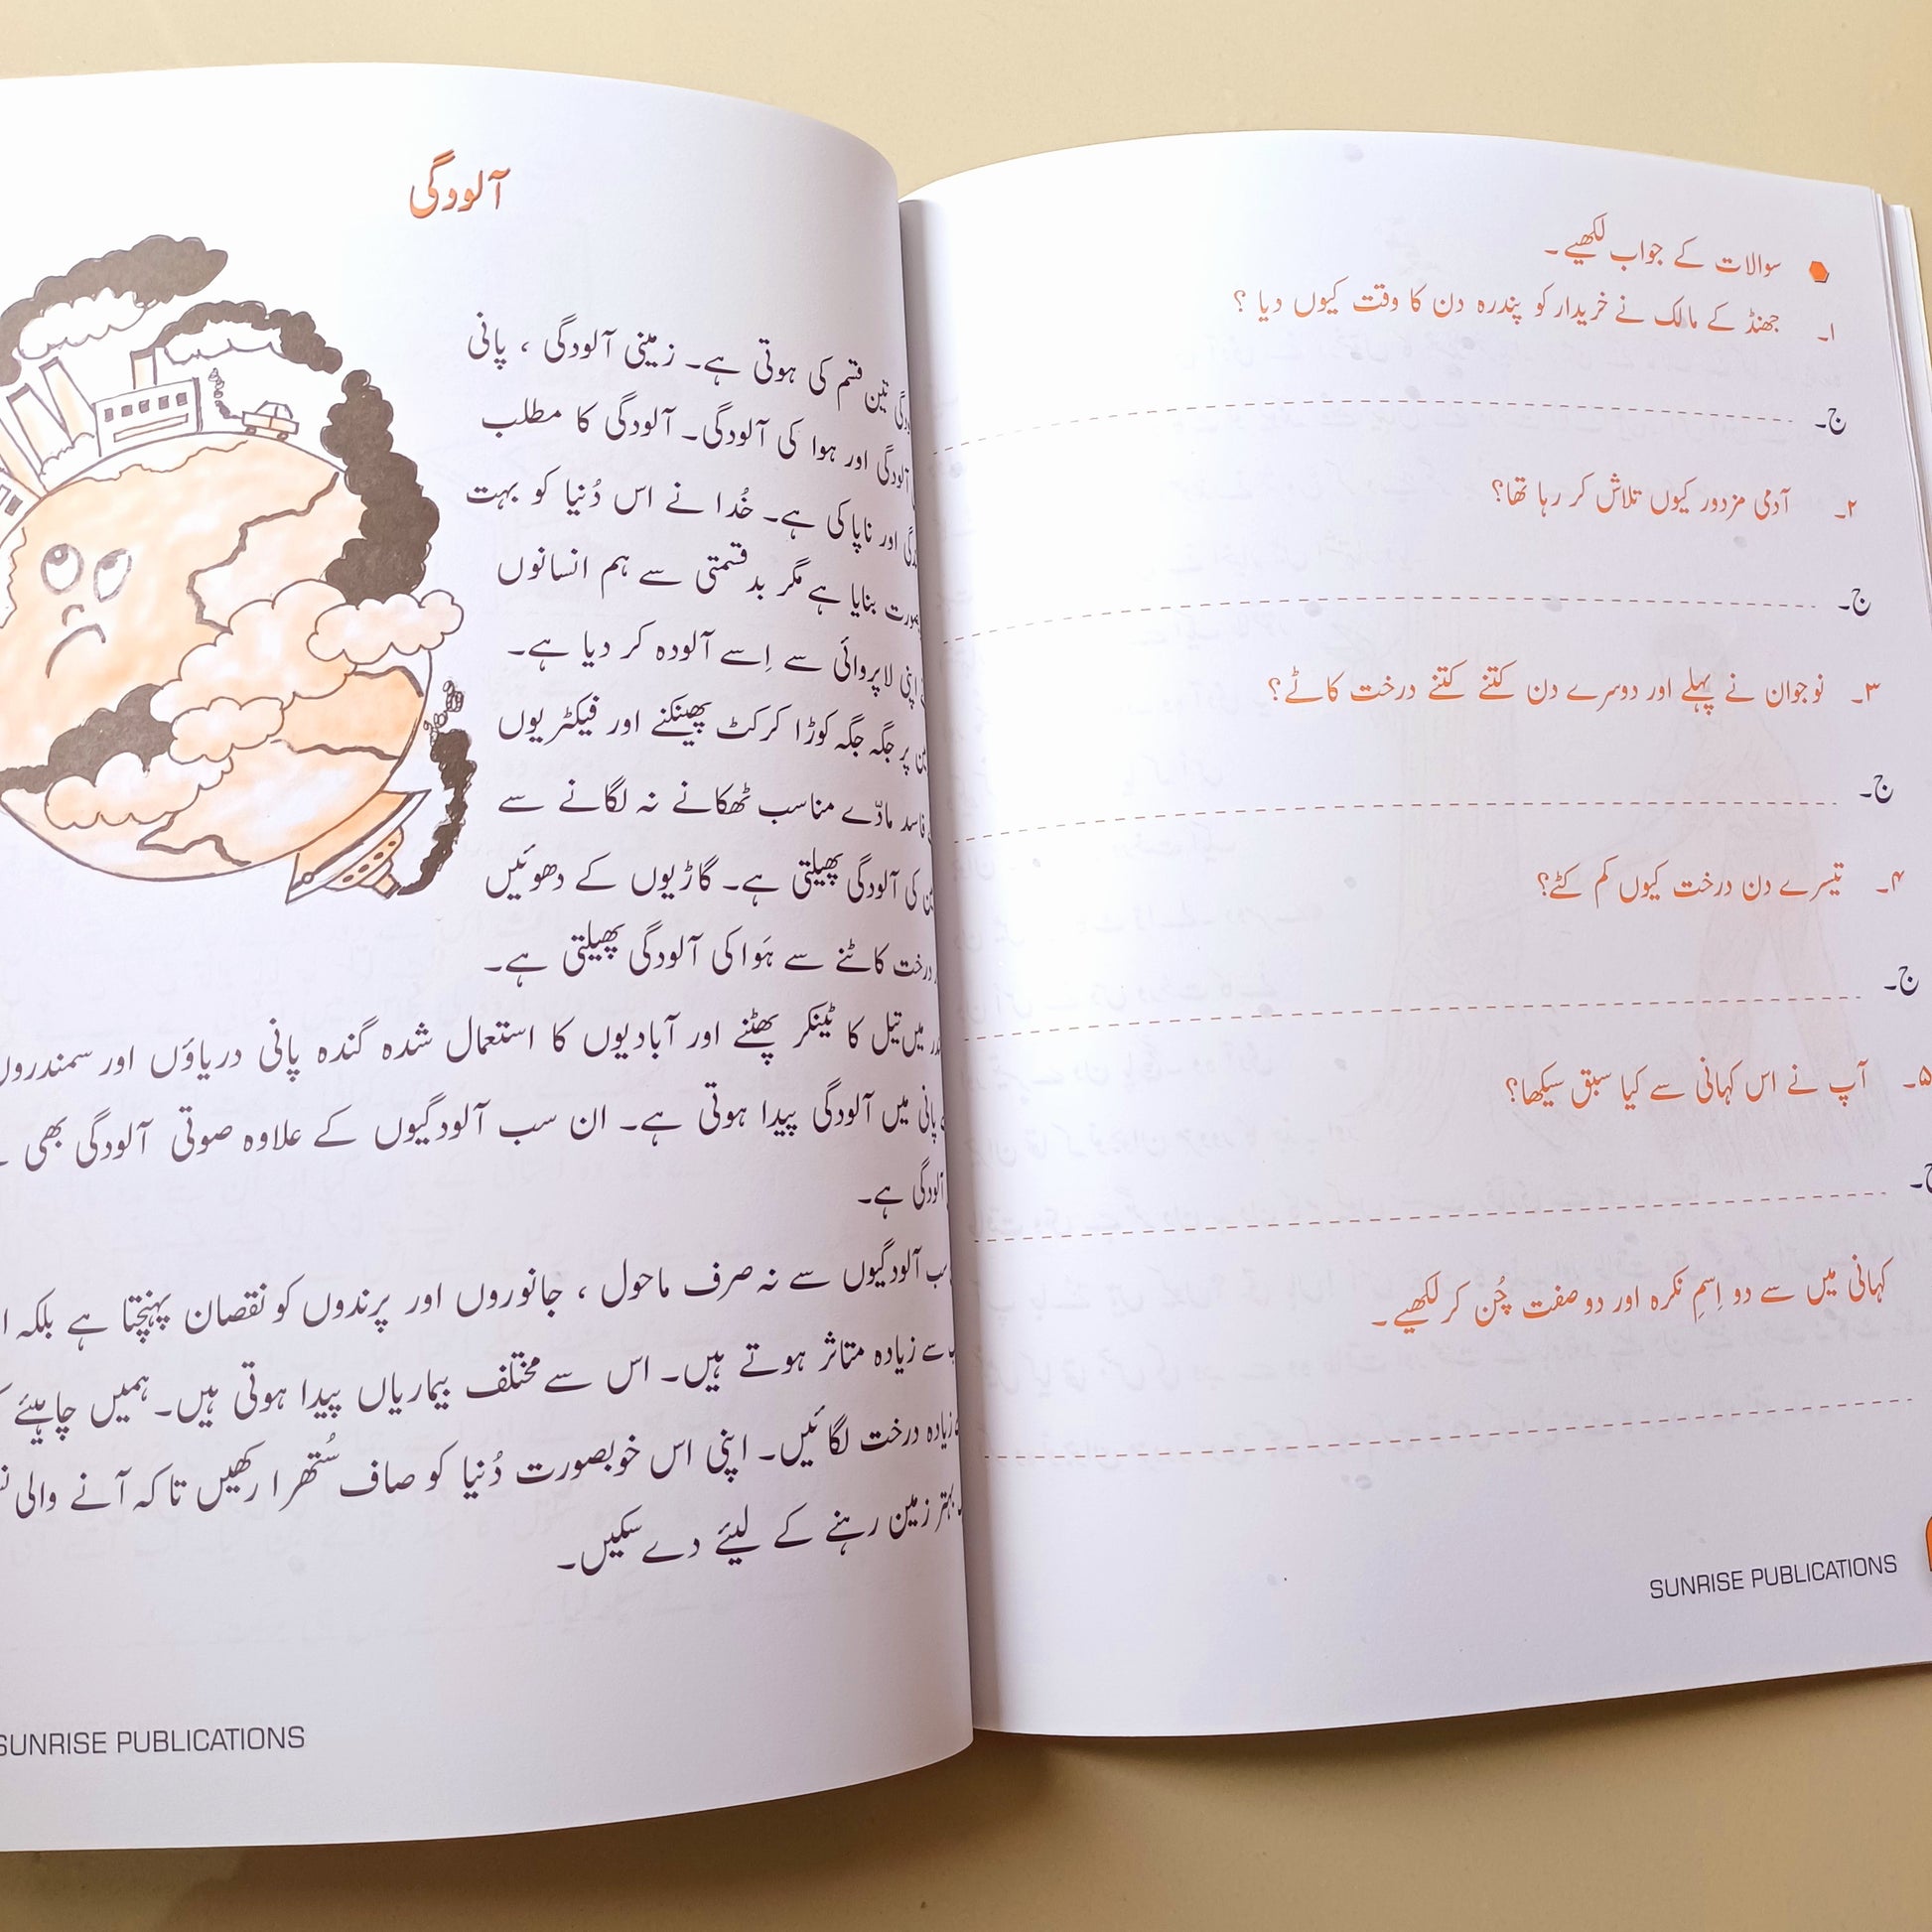 سوالات کے جواب لکھیے۔
۱۔ جھنڈ کے مالک نے خریدار کو پندرہ دن کا وقت کیوں دیا ؟
ج۔
۲۔ آدمی مزدور کیوں تلاش کر رہا تھا؟
ج۔
۳۔ نوجوان نے پہلے اور دوسرے دن کتنے کتنے درخت کاٹے؟
ج۔
۴۔ تیسرے دن درخت کیوں کم کٹے؟
ج۔
۵۔ آپ نے اس کہانی سے کیا سبق سیکھا؟
ج۔
کہانی میں سے دو اِسمِ نکرہ اور دو صفت چُن کر لکھیے۔
SUNRISE PUBLICATIONS
آلودگی
تین قسم کی ہوتی ہے۔ زمینی آلودگی ، پانی
آلودگی اور ہوا کی آلودگی۔ آلودگی کا مطلب
اور ناپاکی ہے۔ خُدا نے اس دُنیا کو بہت
بنایا ہے مگر بدقسمتی سے ہم انسانوں
اپنی لاپروائی سے اِسے آلودہ کر دیا ہے۔
پر جگہ جگہ کوڑا کرکٹ پھینکنے اور فیکٹریوں
فاسد مادّے مناسب ٹھکانے نہ لگانے سے
کی آلودگی پھیلتی ہے۔ گاڑیوں کے دھوئیں
درخت کاٹنے سے ہَوا کی آلودگی پھیلتی ہے۔
میں تیل کا ٹینکر پھٹنے اور آبادیوں کا استعمال شدہ گندہ پانی دریاؤں اور سمندروں
پانی میں آلودگی پیدا ہوتی ہے۔ ان سب آلودگیوں کے علاوہ صوتی آلودگی بھی
آلودگی ہے۔
آلودگیوں سے نہ صرف ماحول ، جانوروں اور پرندوں کو نقصان پہنچتا ہے بلکہ
سے زیادہ متاثر ہوتے ہیں۔ اس سے مختلف بیماریاں پیدا ہوتی ہیں۔ ہمیں چاہیئے
زیادہ درخت لگائیں۔ اپنی اس خوبصورت دُنیا کو صاف سُتھرا رکھیں تاکہ آنے والی
بہتر زمین رہنے کے لیئے دے سکیں۔
SUNRISE PUBLICATIONS